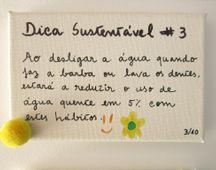 Dica Sustentável #3
Ao desligar a água quando
faz a barba ou lava os dentes,
estará a reduzir o uso de
água quente em 5% com
estes hábitos
3/10